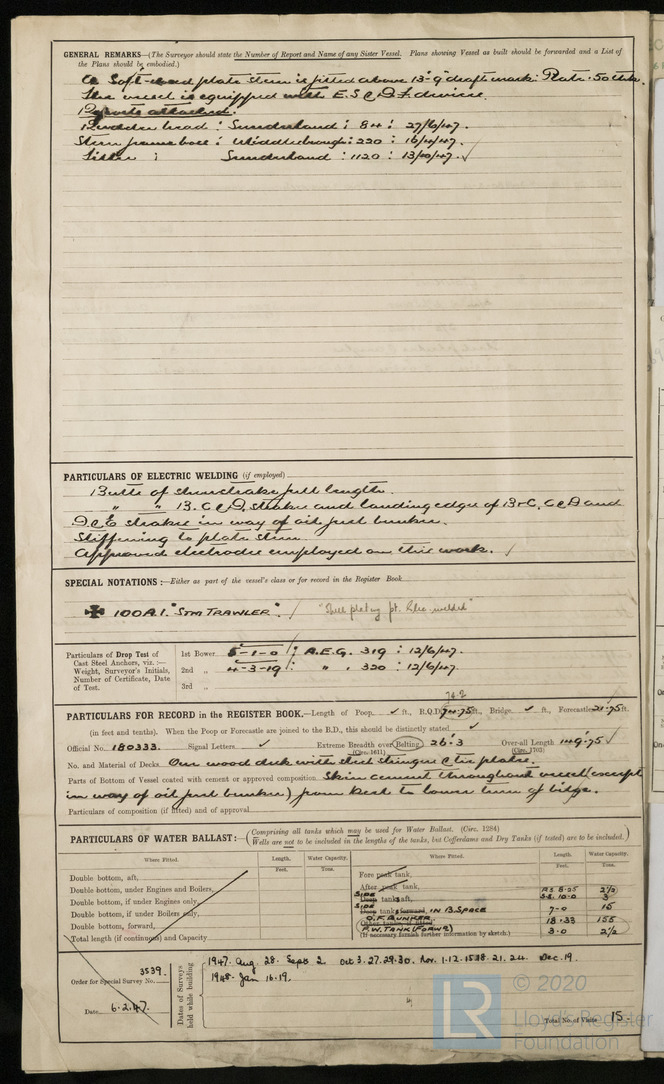 GENERAL REMARKS—(The Surveyor should state the Number of Report and Name of any Sister Vessel. Plans showing Vessel as built should be forwarded and a List of
the Plans should be embodied.)
A Soft-nosed plate stem is fitted above 13'-9" draft mark. Plate .50 thk.
This vessel is equipped with E.S.C. D.F. device.
Reports attached.
Rudder head : Sunderland : 84 : 27/6/47.
Stern frame boss : Middlesbrough : 220 : 16/4/47.
Tiller : Sunderland : 1120 : 13/10/47. ✓
PARTICULARS OF ELECTRIC WELDING (if employed)
Butts of shearstrake full length.
" " B. C & D. strakes and landing edges of B & C, C & D and
D & E strakes in way of oil fuel bunker.
Stiffening to plate stem.
Approved electrodes employed on this work. ✓
SPECIAL NOTATIONS:—Either as part of the vessel's class or for record in the Register Book
✠ 100A.1. "Stm TRAWLER." / "Shell plating pt. Elec. welded"
Particulars of Drop Test of
Cast Steel Anchors, viz.:—
Weight, Surveyor's Initials,
Number of Certificate, Date
of Test.
1st Bower 5-1-0 : A.E.G. 319 : 12/6/47.
2nd „ 4-3-19 : " . 320 : 12/6/47.
3rd „
74.2
PARTICULARS FOR RECORD in the REGISTER BOOK.—Length of Poop ✓ ft., R.Q.D. 74.75 ft., Bridge ✓ ft., Forecastle 21.75 ft.
(in feet and tenths). When the Poop or Forecastle are joined to the B.D., this should be distinctly stated ✓
Official No. 180333. Signal Letters ✓ Extreme Breadth over Belting 26.3 Over-all Length 149.75 ✓
(Circ. 1611) (Circ. 1703)
No. and Material of Decks One wood deck with steel stringer & tie plates.
Parts of Bottom of Vessel coated with cement or approved composition Skin cement throughout vessel (except
in way of oil fuel bunker) from keel to lower turn of bilge.
Particulars of composition (if fitted) and of approval
PARTICULARS OF WATER BALLAST:—(Comprising all tanks which may be used for Water Ballast. (Circ. 1284)
Wells are not to be included in the lengths of the tanks, but Cofferdams and Dry Tanks (if tested) are to be included.)
Where Fitted. Length. Water Capacity. Where Fitted. Length. Water Capacity.
Feet. Tons. Feet. Tons.
Double bottom, aft, Fore peak tank,
Double bottom, under Engines and Boilers, After peak tank,
Double bottom, if under Engines only, SIDE Deep tank aft,
Double bottom, if under Boilers only, SIDE Deep tank forward, IN B. SPACE 7-0 15
Double bottom, forward, Other tanks, if fitted O.F. BUNKER 18.33 155
Total length (if continuous) and Capacity F.W. TANK (FORWD) 3.0 2½
(If necessary furnish further information by sketch.)
Order for Special Survey No. 3539.
Date 6.2.47.
Dates of Surveys held while building
1947. Aug. 28. Sept 2. Oct 3. 27. 29. 30. Nov. 1. 12. 15 18. 21. 24. Dec. 19.
1948. Jan 16. 19.
Total No. of Visits 15.
LR
© 2020
Lloyd's Register
Foundation